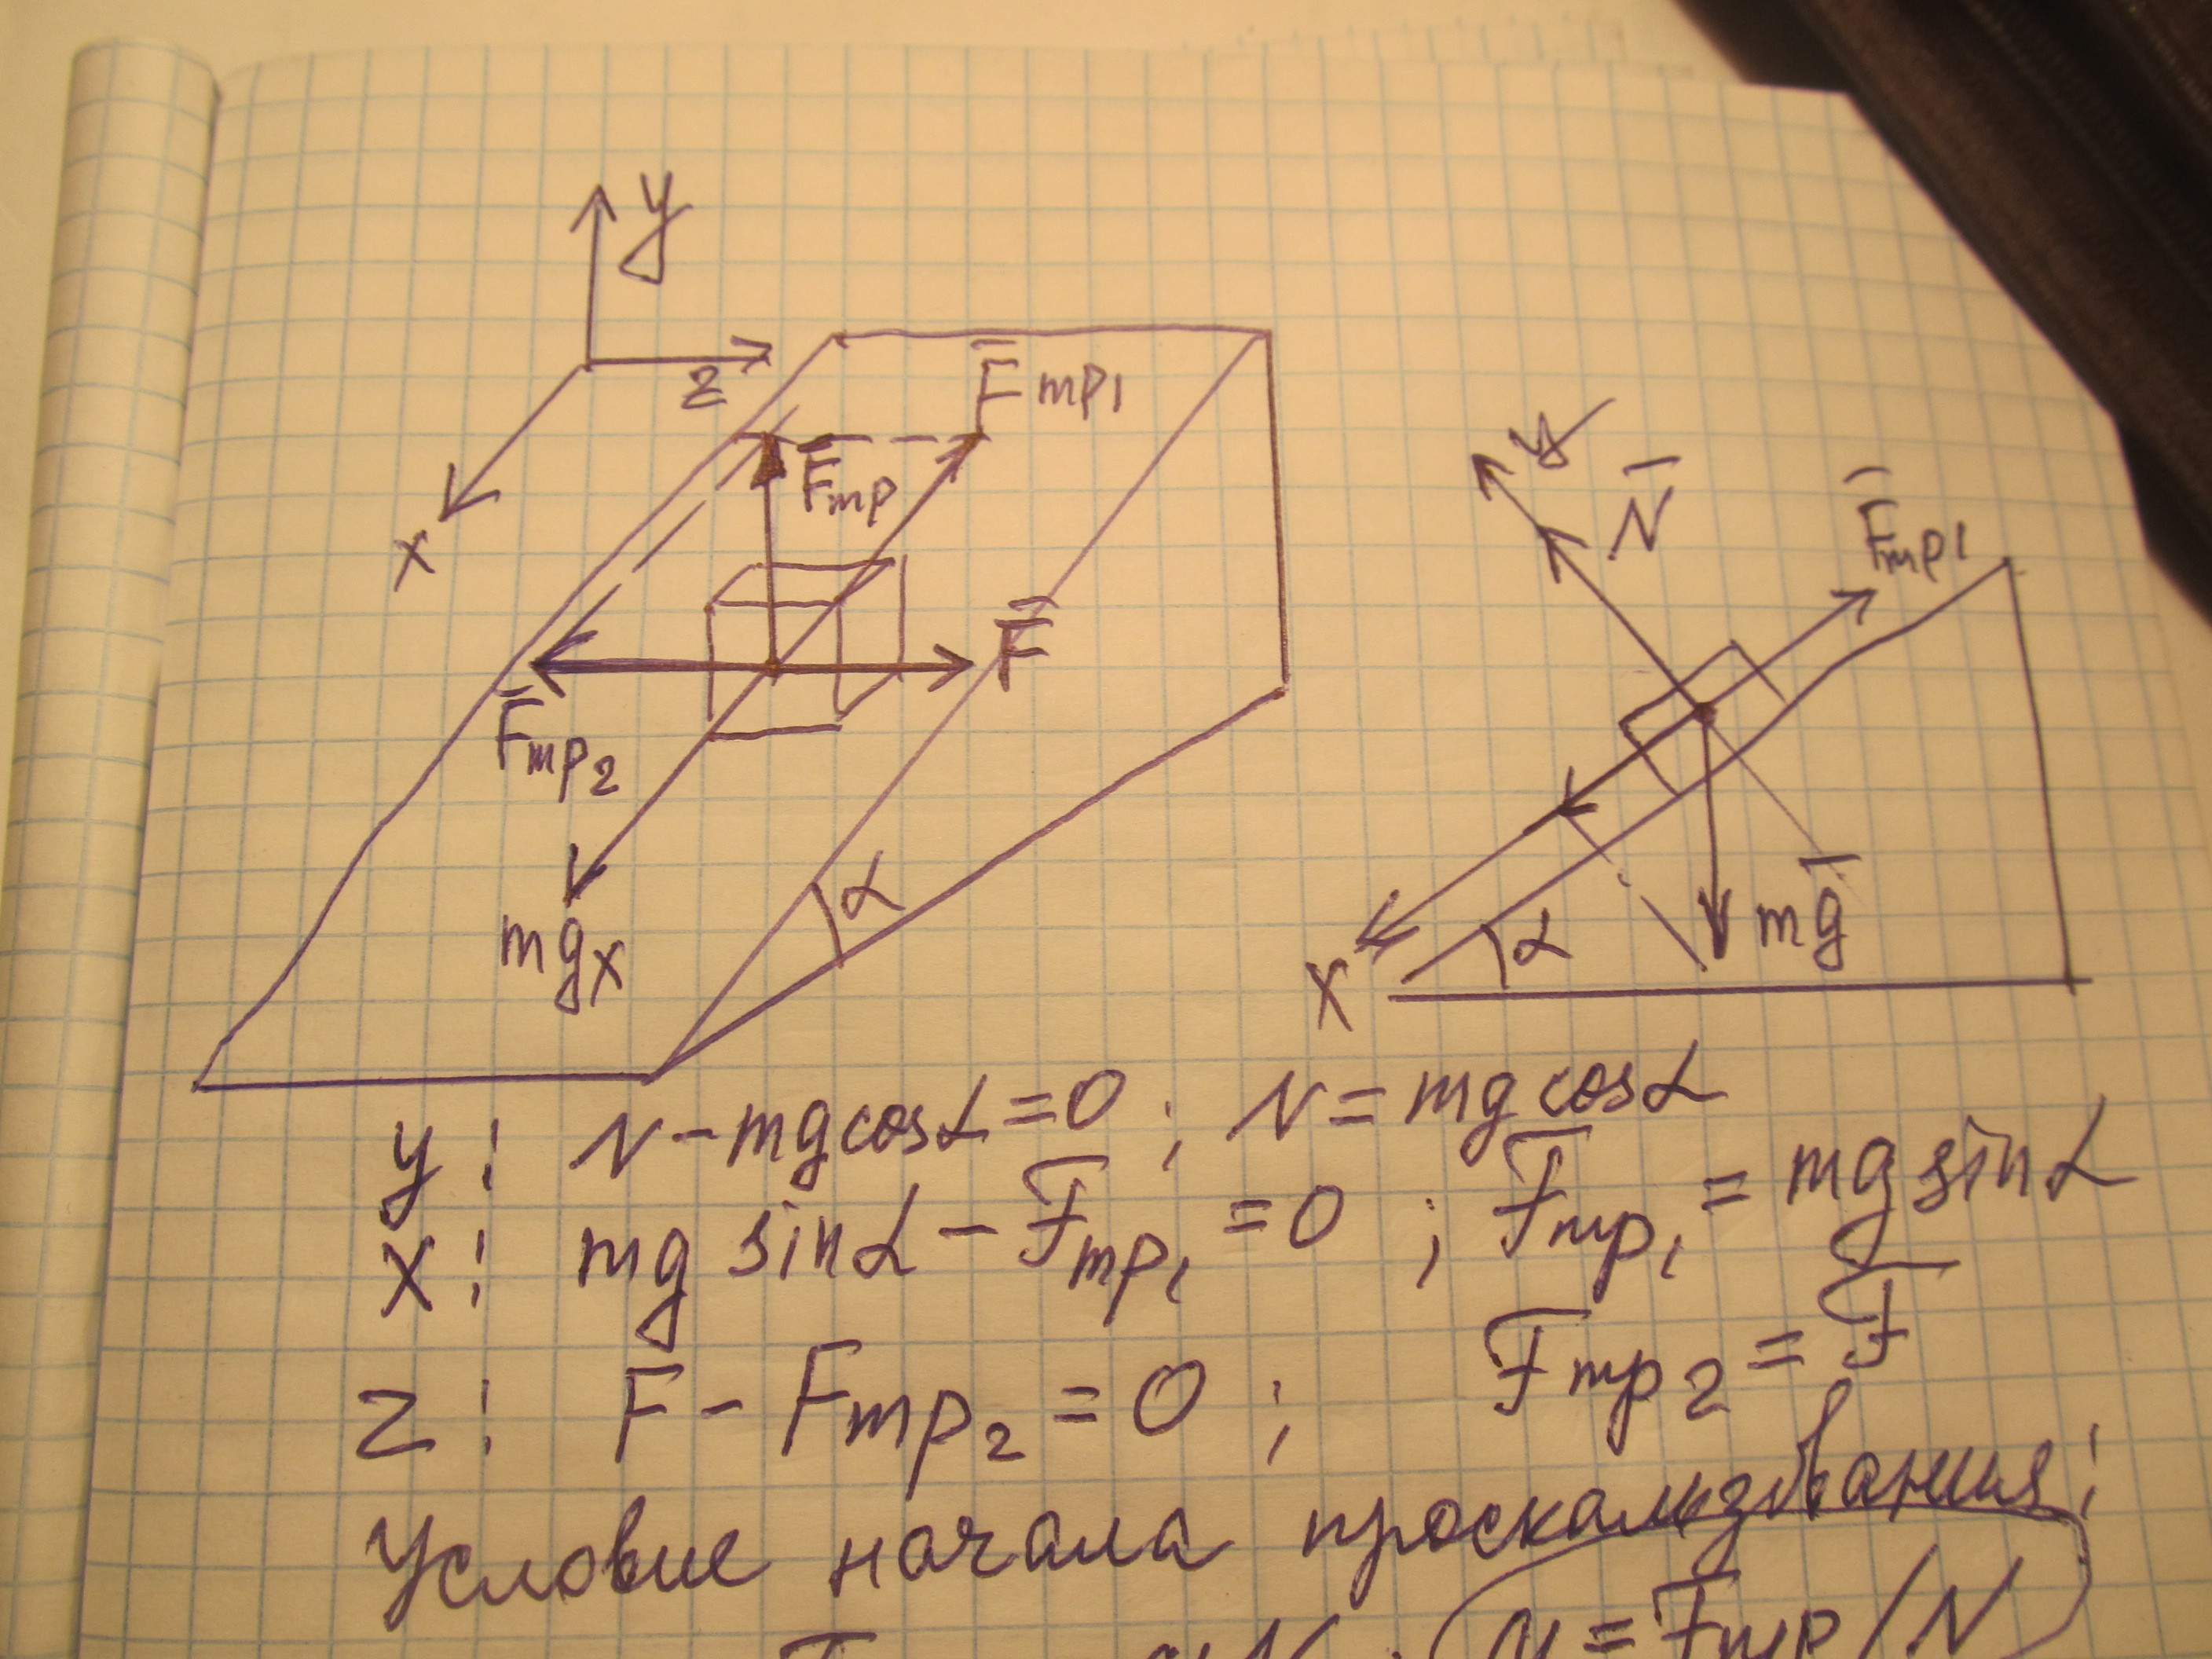 y
z
x
F̅тр1
F̅тр
F̅
F̅тр2
mgx
α
y
N̅
F̅тр1
x
α
mg̅
y: N - mg cosα = 0 ; N = mg cosα
x: mg sinα - Fтр1 = 0 ; Fтр1 = mg sinα
z: F - Fтр2 = 0 ; Fтр2 = F
Условие начала проскальзывания:
μ = Fтр/N